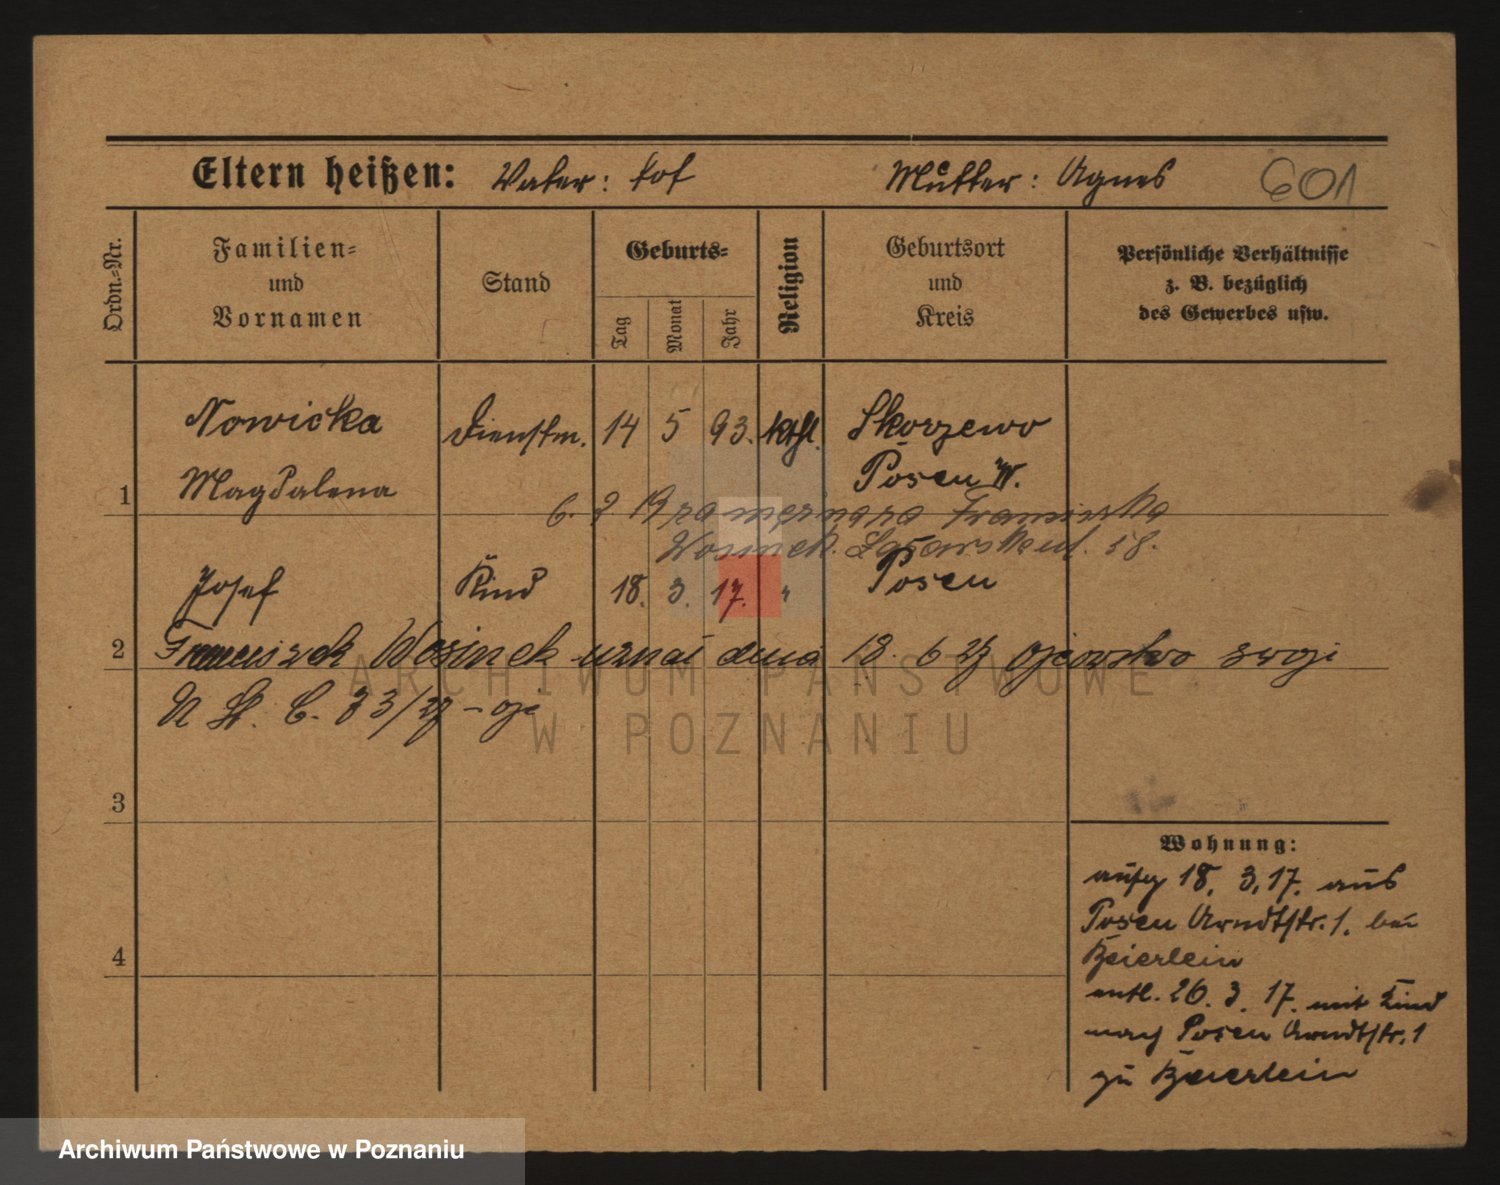 Eltern heißen: Vater: tot Mutter: Agnes 601
Ordn.=Nr.
Familien=
und
Vornamen
Stand
Geburts=
Tag
Monat
Jahr
Religion
Geburtsort
und
Kreis
Persönliche Verhältnisse
z. B. bezüglich
des Gewerbes usw.
Nowicka Dienstm. 14 5 93. kthl. Skorzewo
1 Magdalena Posen W.
6. 2 19 zamężna za Franciszka
Wosinek. 58.
Josef Kind 18. 3. 17. " Posen
2 Franciszek Wosinek uznał dnia 18. 6 27 ojcowstwo swoje
St. C. 33/27
3
4
Wohnung:
aufg 18. 3. 17. aus
Posen Arndtstr. 1. bei
Beierlein
entl. 26. 3. 17. mit Kind
nach Posen Arndtstr. 1
zu Beierlein
ARCHIWUM PAŃSTWOWE
W POZNANIU
Archiwum Państwowe w Poznaniu